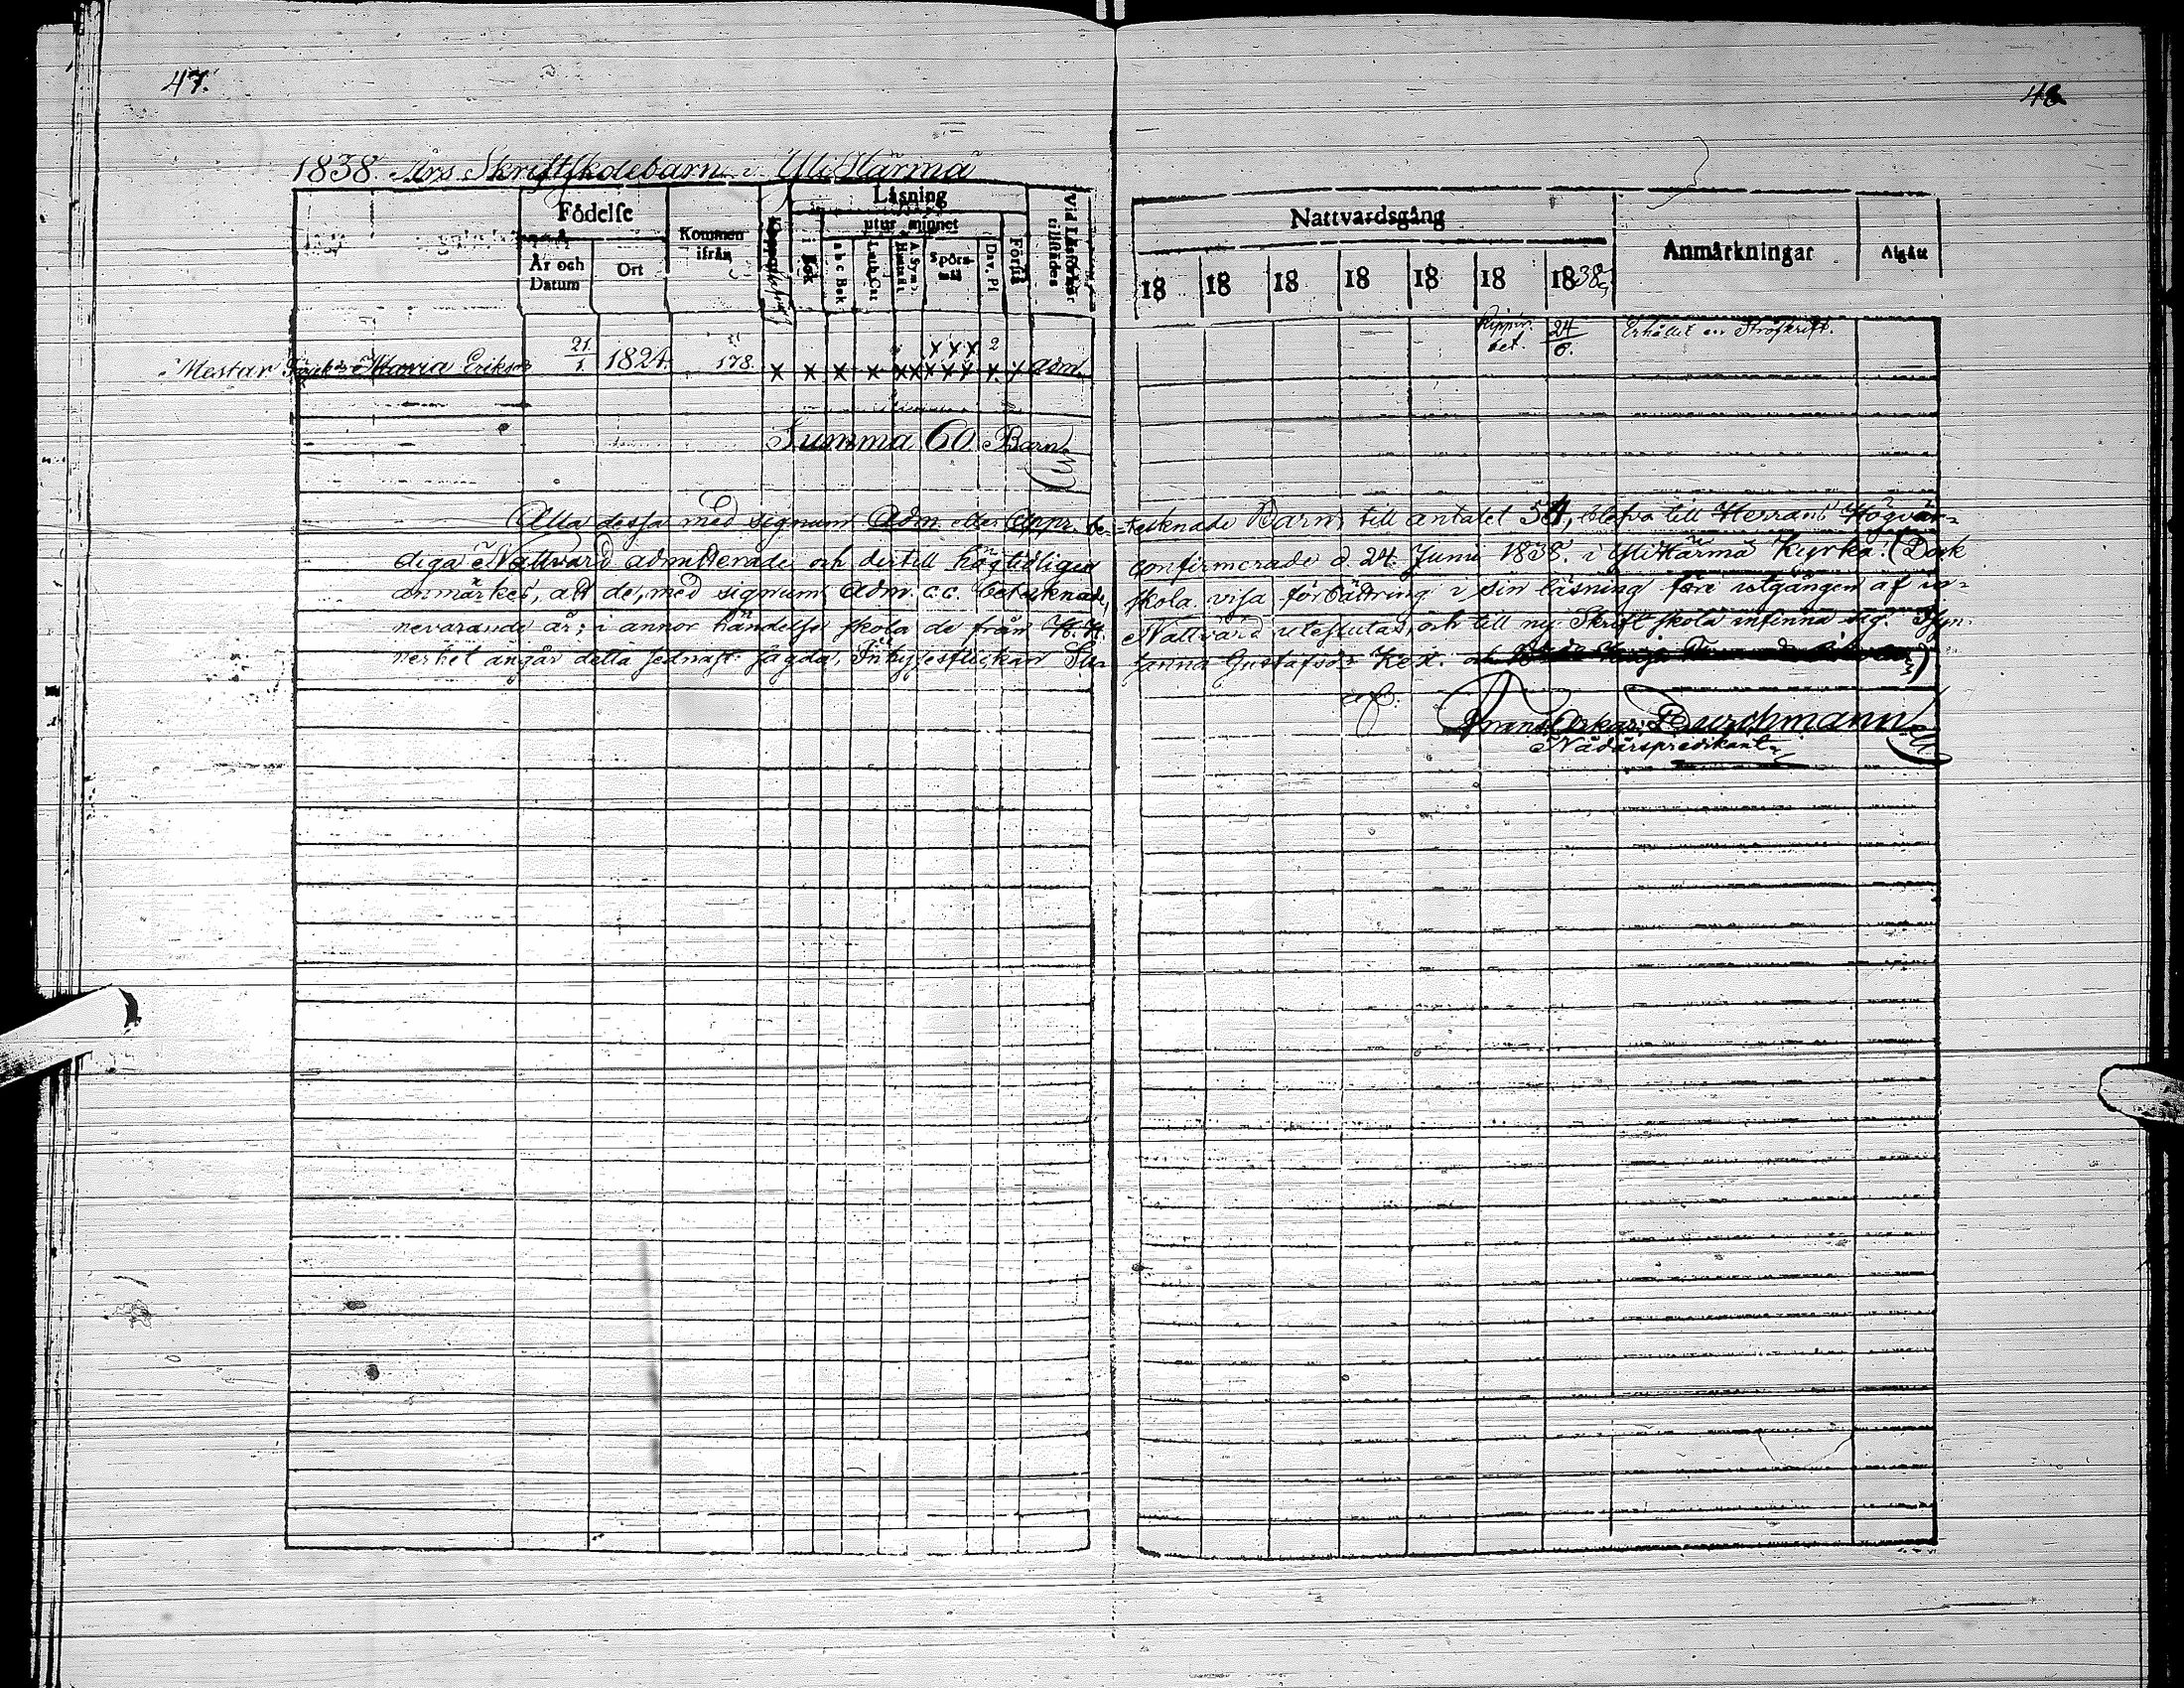 47.
48
1838. Års Skriftskolebarn i YliHärmä
Födelse
År och Datum
Ort
Kommen ifrån
Läsning
i Bok
utur minnet
a b c Bok
Luth. Cat
A. Sym.
Hustafl
Spörsmål
Dav. Ps
Förstå
Vid Läsförhör tillstädes
Nattvardsgång
18 18 18 18 18 18 1838
Anmärkningar
Afgått
Mestar Maria Eriks 21/1 1824. 178. x x x x x x x x x x x x x x 2 x x adm. 24/6. Erhållit en Ströskrift.
Summa 60 Barn
Alla dessa med signum Adm eller Appr. be-teknade Barn, till antalet 54, blefvo till Herrans Högvär-
diga Nattvard admitterade och dertill högtidligen confirmerade d. 24 Junii 1838. i YliHärmä Kyrka. (Dock
anmärkes, att de, med signum Adm. c.c. betecknade, skola visa förbättring i sin läsning före utgången af in-
nevarande år; i annor händelse skola de från H.H. Nattvard uteslutas, och till ny Skriftskola infinna sig. Syn-
nerhet angår detta sednast sagda, Inhysesflickan Su-sanna Gustafsdr Kex. och
Frans Oskar Durchmann
Nådårspredikant